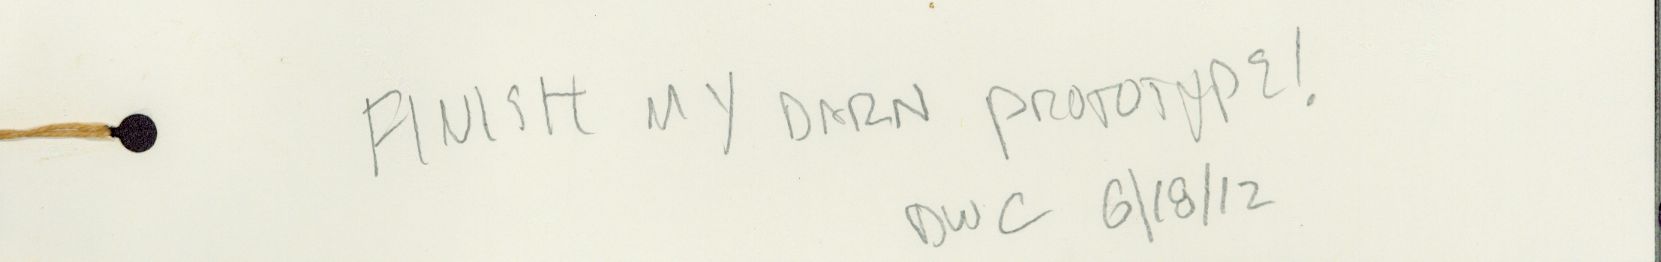 FINISH MY DARN PROTOTYPE!
DWC 6/18/12